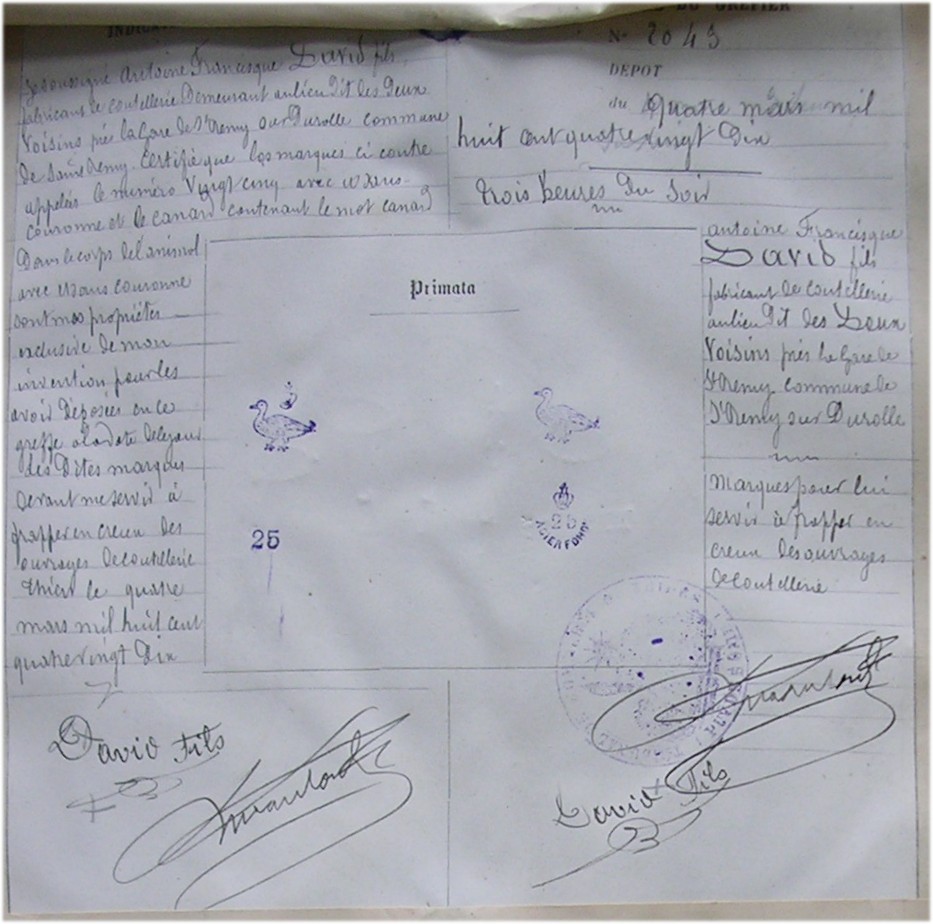 INDICAT
Je soussigné Antoine Francisque David fils,
fabricant de coutellerie Demeurant au lieu Dit des Deux
Voisins près la Gare de St Remy sur Durolle commune
de Saint Remy. Certifie que les marques ci contre
appelées le numéro Vingt cinq avec et sans
couronne et le canard contenant le mot canard
Dans le corps de l'animal
avec et sans couronne
sont mes propriétés
exclusive de mon
invention pour les
avoir Déposées en ce
greffe à la date de ce jour
des Dites marques
devant me servir à
frapper en creux des
ouvrages De coutellerie
Thiers le quatre
mars mil huit cent
quatre vingt Dix
DU GREFIER
No 2049
DÉPOT
du quatre mars mil
huit cent quatre vingt Dix
trois heures Du Soir
antoine Francisque
David fils
fabricant De coutellerie
au lieu Dit des Deux
Voisins près la Gare de
St Remy commune de
St Remy sur Durolle
Marques pour lui
servir à frapper en
creux des ouvrages
de coutellerie
Primata
25
25
ACIER FONDU
David Fils
David Fils